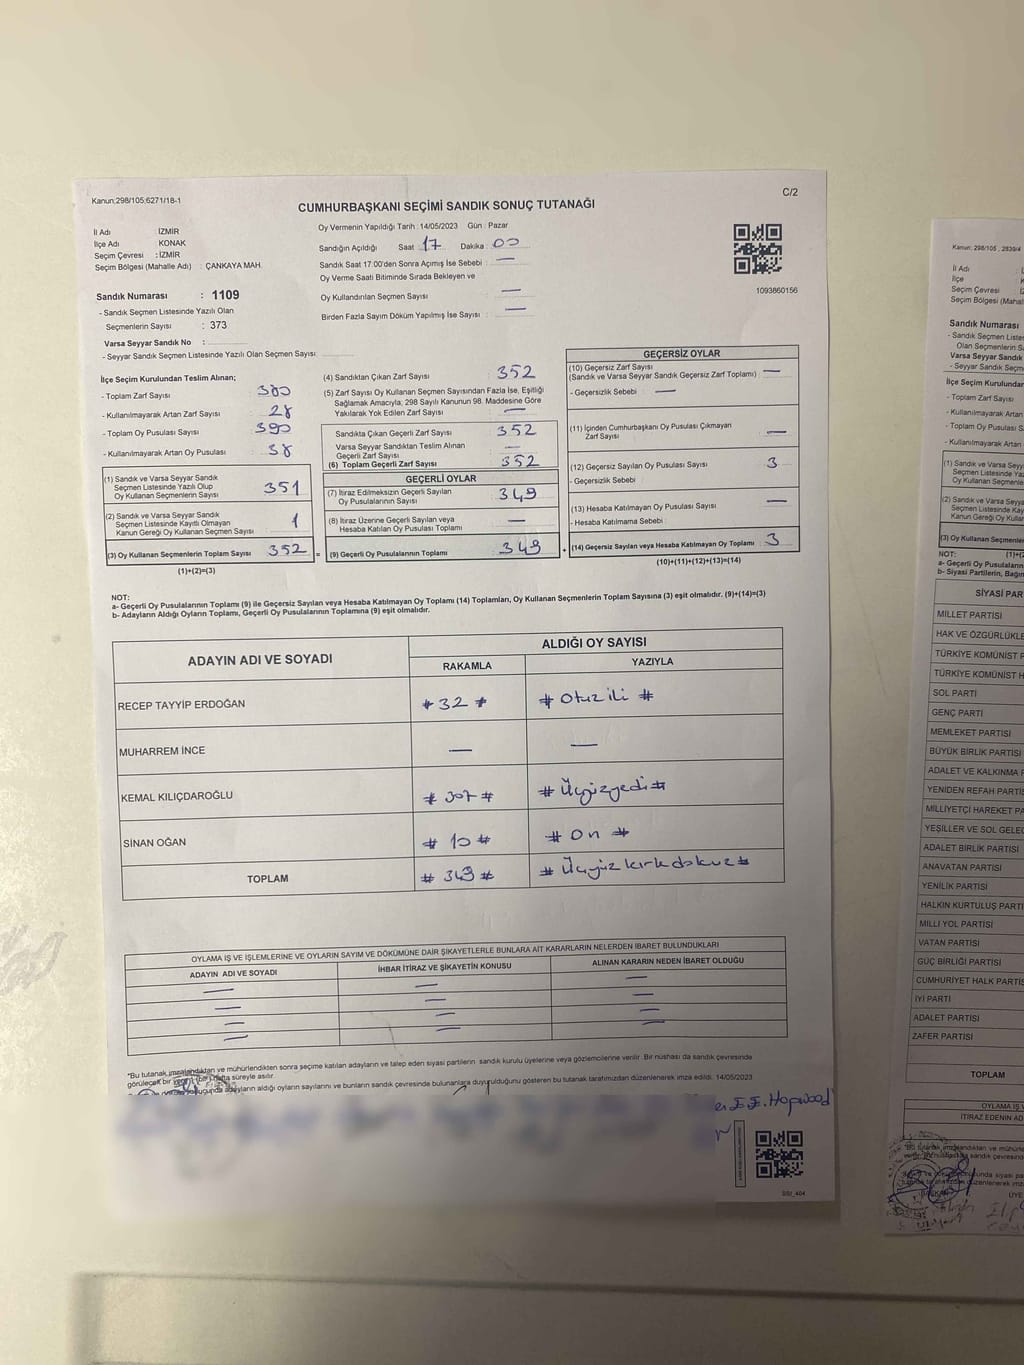 Kanun;298/105;6271/18-1
C/2
CUMHURBAŞKANI SEÇİMİ SANDIK SONUÇ TUTANAĞI
İl Adı İZMİR
İlçe Adı KONAK
Seçim Çevresi : İZMİR
Seçim Bölgesi (Mahalle Adı) : ÇANKAYA MAH.
Sandık Numarası : 1109
- Sandık Seçmen Listesinde Yazılı Olan
Seçmenlerin Sayısı : 373
Varsa Seyyar Sandık No :
- Seyyar Sandık Seçmen Listesinde Yazılı Olan Seçmen Sayısı:
Oy Vermenin Yapıldığı Tarih : 14/05/2023 Gün : Pazar
Sandığın Açıldığı Saat : 17 Dakika : 00
Sandık Saat 17.00'den Sonra Açılmış İse Sebebi : —
Oy Verme Saati Bitiminde Sırada Bekleyen ve
Oy Kullandırılan Seçmen Sayısı : —
Birden Fazla Sayım Döküm Yapılmış İse Sayısı : —
1093860156
İlçe Seçim Kurulundan Teslim Alınan;
- Toplam Zarf Sayısı : 380
- Kullanılmayarak Artan Zarf Sayısı : 28
- Toplam Oy Pusulası Sayısı : 390
- Kullanılmayarak Artan Oy Pusulası : 38
(1) Sandık ve Varsa Seyyar Sandık
Seçmen Listesinde Yazılı Olup
Oy Kullanan Seçmenlerin Sayısı 351
(2) Sandık ve Varsa Seyyar Sandık
Seçmen Listesinde Kayıtlı Olmayan
Kanun Gereği Oy Kullanan Seçmen Sayısı 1
(3) Oy Kullanan Seçmenlerin Toplam Sayısı 352
(1)+(2)=(3)
(4) Sandıktan Çıkan Zarf Sayısı : 352
(5) Zarf Sayısı Oy Kullanan Seçmen Sayısından Fazla İse, Eşitliği
Sağlamak Amacıyla; 298 Sayılı Kanunun 98. Maddesine Göre
Yakılarak Yok Edilen Zarf Sayısı : —
Sandıkta Çıkan Geçerli Zarf Sayısı : 352
Varsa Seyyar Sandıktan Teslim Alınan
Geçerli Zarf Sayısı : —
(6) Toplam Geçerli Zarf Sayısı : 352
GEÇERLİ OYLAR
(7) İtiraz Edilmeksizin Geçerli Sayılan
Oy Pusulalarının Sayısı : 349
(8) İtiraz Üzerine Geçerli Sayılan veya
Hesaba Katılan Oy Pusulası Toplamı : —
= (9) Geçerli Oy Pusulalarının Toplamı : 349
GEÇERSİZ OYLAR
(10) Geçersiz Zarf Sayısı
(Sandık ve Varsa Seyyar Sandık Geçersiz Zarf Toplamı) : —
- Geçersizlik Sebebi : —
(11) İçinden Cumhurbaşkanı Oy Pusulası Çıkmayan
Zarf Sayısı : —
(12) Geçersiz Sayılan Oy Pusulası Sayısı : 3
- Geçersizlik Sebebi :
(13) Hesaba Katılmayan Oy Pusulası Sayısı : —
- Hesaba Katılmama Sebebi :
+ (14) Geçersiz Sayılan veya Hesaba Katılmayan Oy Toplamı : 3
(10)+(11)+(12)+(13)=(14)
NOT:
a- Geçerli Oy Pusulalarının Toplamı (9) ile Geçersiz Sayılan veya Hesaba Katılmayan Oy Toplamı (14) Toplamları, Oy Kullanan Seçmenlerin Toplam Sayısına (3) eşit olmalıdır. (9)+(14)=(3)
b- Adayların Aldığı Oyların Toplamı, Geçerli Oy Pusulalarının Toplamına (9) eşit olmalıdır.
ADAYIN ADI VE SOYADI ALDIĞI OY SAYISI
RAKAMLA YAZIYLA
RECEP TAYYİP ERDOĞAN # 32 # # Otuz iki #
MUHARREM İNCE — —
KEMAL KILIÇDAROĞLU # 307 # # Üçyüzyedi #
SİNAN OĞAN # 10 # # On #
TOPLAM # 349 # # Üçyüz kırk dokuz #
OYLAMA İŞ VE İŞLEMLERİNE VE OYLARIN SAYIM VE DÖKÜMÜNE DAİR ŞİKAYETLERLE BUNLARA AİT KARARLARIN NELERDEN İBARET BULUNDUKLARI
ADAYIN ADI VE SOYADI İHBAR İTİRAZ VE ŞİKAYETİN KONUSU ALINAN KARARIN NEDEN İBARET OLDUĞU
— — —
— — —
— — —
— — —
*Bu tutanak imzalandıktan ve mühürlendikten sonra seçime katılan adayların ve talep eden siyasi partilerin sandık kurulu üyelerine veya gözlemcilerine verilir. Bir nüshası da sandık çevresinde
görülecek bir yere hafta süreyle asılır.
adayların aldığı oyların sayılarını ve bunların sandık çevresinde bulunanlara duyurulduğunu gösteren bu tutanak tarafımızdan düzenlenerek imza edildi. 14/05/2023
Hopwood
SSI_404
Kanun; 298/105
İl Adı
İlçe
Seçim Çevresi
Seçim Bölgesi (Mahal
Sandık Numarası
- Sandık Seçmen Liste
Olan Seçmenlerin S
Varsa Seyyar Sandık
- Seyyar Sandık Seçme
İlçe Seçim Kurulundan
- Toplam Zarf Sayısı
- Kullanılmayarak Artan
- Toplam Oy Pusulası
- Kullanılmayarak Artan
(1) Sandık ve Varsa Seyy
Seçmen Listesinde Yaz
Oy Kullanan Seçmenle
(2) Sandık ve Varsa Sey
Seçmen Listesinde K
Kanun Gereği Oy Kulla
(3) Oy Kullanan Seçmenle
NOT: (1)+(
a- Geçerli Oy Pusulaların
b- Siyasi Partilerin, Bağım
SİYASİ PAR
MİLLET PARTİSİ
HAK VE ÖZGÜRLÜKLE
TÜRKİYE KOMÜNİST P
TÜRKİYE KOMÜNİST H
SOL PARTİ
GENÇ PARTİ
MEMLEKET PARTİSİ
BÜYÜK BİRLİK PARTİSİ
ADALET VE KALKINMA P
YENİDEN REFAH PARTİS
MİLLİYETÇİ HAREKET PA
YEŞİLLER VE SOL GELEC
ADALET BİRLİK PARTİSİ
ANAVATAN PARTİSİ
YENİLİK PARTİSİ
HALKIN KURTULUŞ PARTİ
MİLLİ YOL PARTİSİ
VATAN PARTİSİ
GÜÇ BİRLİĞİ PARTİSİ
CUMHURİYET HALK PARTİS
İYİ PARTİ
ADALET PARTİSİ
ZAFER PARTİSİ
TOPLAM
OYLAMA İŞ V
İTİRAZ EDENİN AD